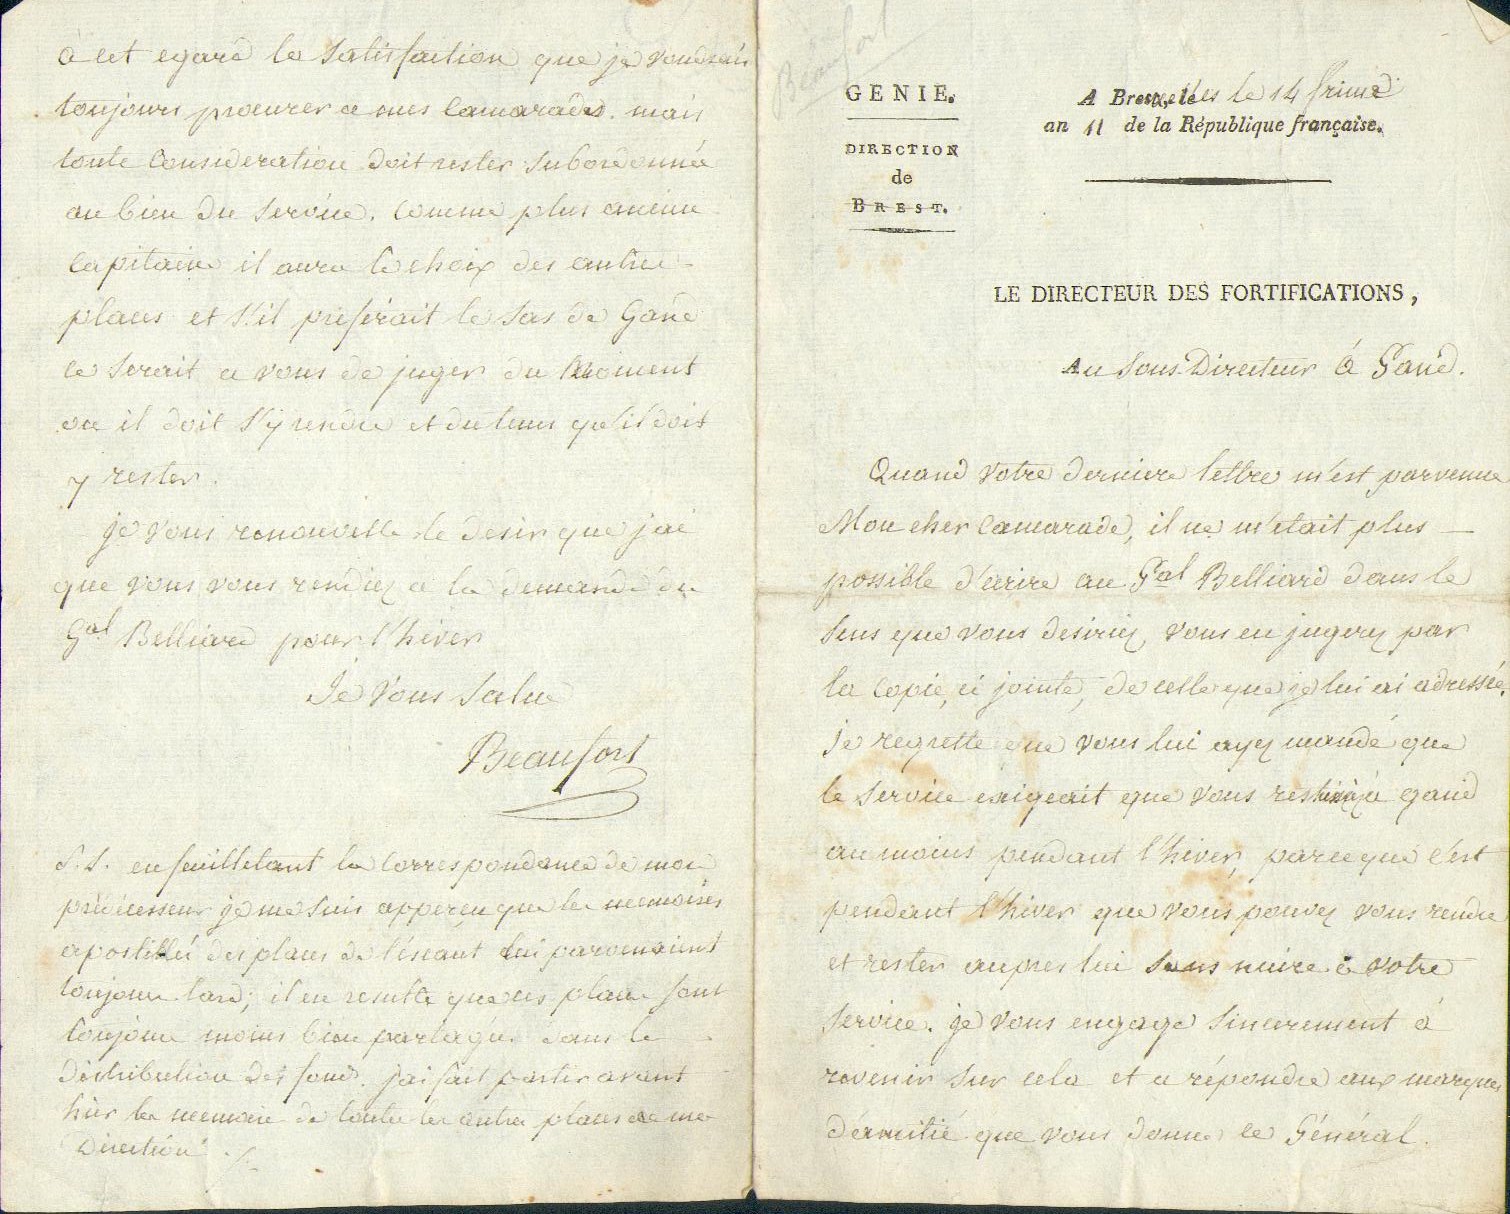 GENIE.
DIRECTION
de
BREST.
A Bruxelles le 14 frimr
an 11 de la République française.
LE DIRECTEUR DES FORTIFICATIONS,
Au Sous-Directeur à Gand.
Quand votre derniere lettre m'est parvenue
Mon cher Camarade, il ne m'etait plus
possible d'ecrire au Gal Belliard dans le
sens que vous desiriez, vous en jugerez par
la copie, ci jointe, de celle que je lui ai adressée.
je regrette que vous lui ayez mandé que
le service exigeait que vous restiez à gand
au moins pendant l'hiver, parceque c'est
pendant l'hiver que vous pouvez vous rendre
et rester aupres lui sans nuire à votre
service. je vous engage sincerement à
revenir sur cela et a répondre aux marques
d'amitié que vous donne le Général.
à cet egard la satisfaction que je voudrais
toujours procurer a mes Camarades. mais
toute consideration doit rester subordonnée
au bien du service. comme plus ancien
capitaine il aura le choix des autres
places et s'il preferait le Sas de Gand
ce serait a vous de juger du Moment
ou il doit s'y rendre et du tems qu'il doit
y rester.
je vous renouvelle le desir que j'ai
que vous vous rendiez a la demande du
Gal Belliard pour l'hiver
Je vous salue
Beaufort
P.S. en feuilletant la correspondance de mon
prédécesseur je me suis apperçu que les memoires
apostillés des places de l'escaut lui parvenaient
toujours tard; il en resulte que ces places sont
toujours moins bien partagées dans la
distribution des fonds. j'ai fait partir avant
hier les memoires de toutes les autres places de ma
Direction ./.
Beaufort